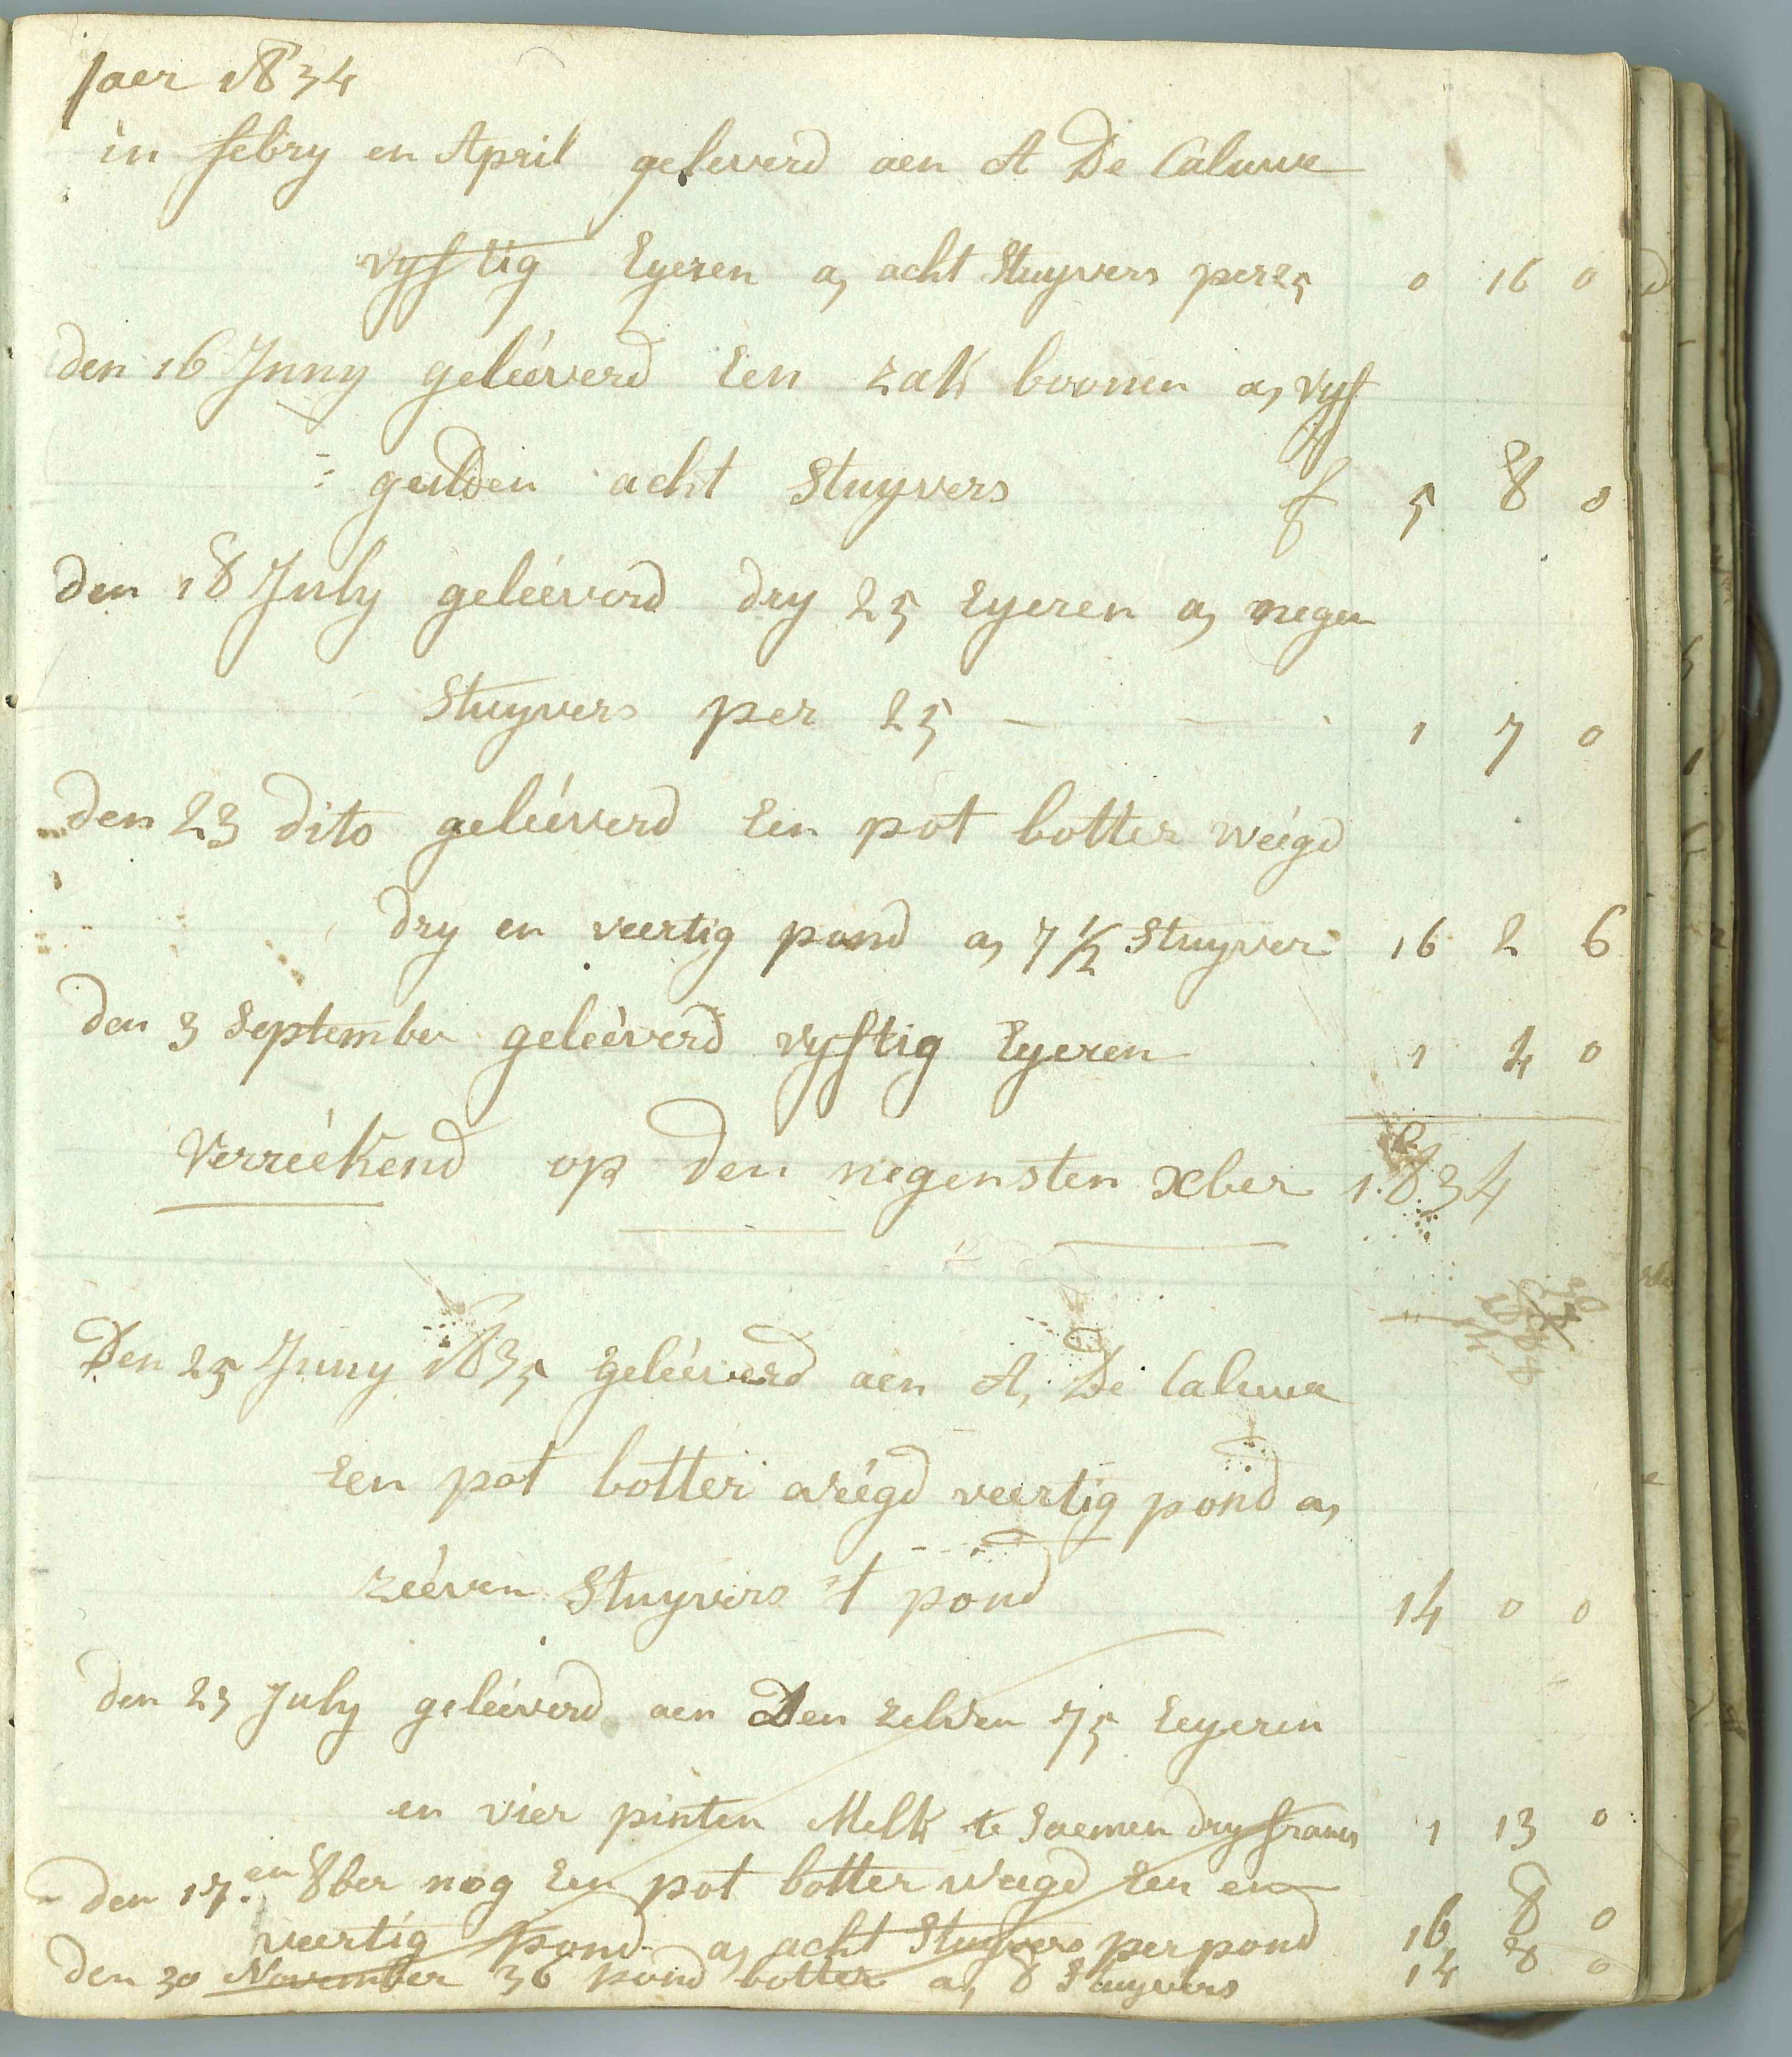 Jaer 1834
in febry en April geleverd aen A De Caluwe
vyftig Eyeren a, acht Stuyvers per 25 0 16 0
den 16 Juny geleéverd Een zak boonen a, vyf
gulden acht Stuyvers f 5 8 0
den 18 July geleéverd dry 25 Eyeren a, negen
Stuyvers per 25 - 1 7 0
den 23 dito geleéverd Een pot botter weégd
dry en veertig pond a, 7 1/2 Stuyver 16 2 6
den 3 September geleéverd vyftig Eyeren 1 4 0
Verreékend op den negensten xber 1834
Den 25 Juny 1835 geleéverd aen A, De Caluwe
Een pot botter weégd veertig pond a,
zeéven Stuyvers 't pond 14 0 0
den 23 July geleéverd aen Den zelven 75 Eeyeren
en vier pinten Melk te Saemen dry francs 1 13 0
den 17.en 8ber nog Een pot botter weegd Een en
veertig pond a, acht Stuyvers per pond 16 8 0
den 30 November 36 pond botter a, 8 Stuyvers 14 8 0